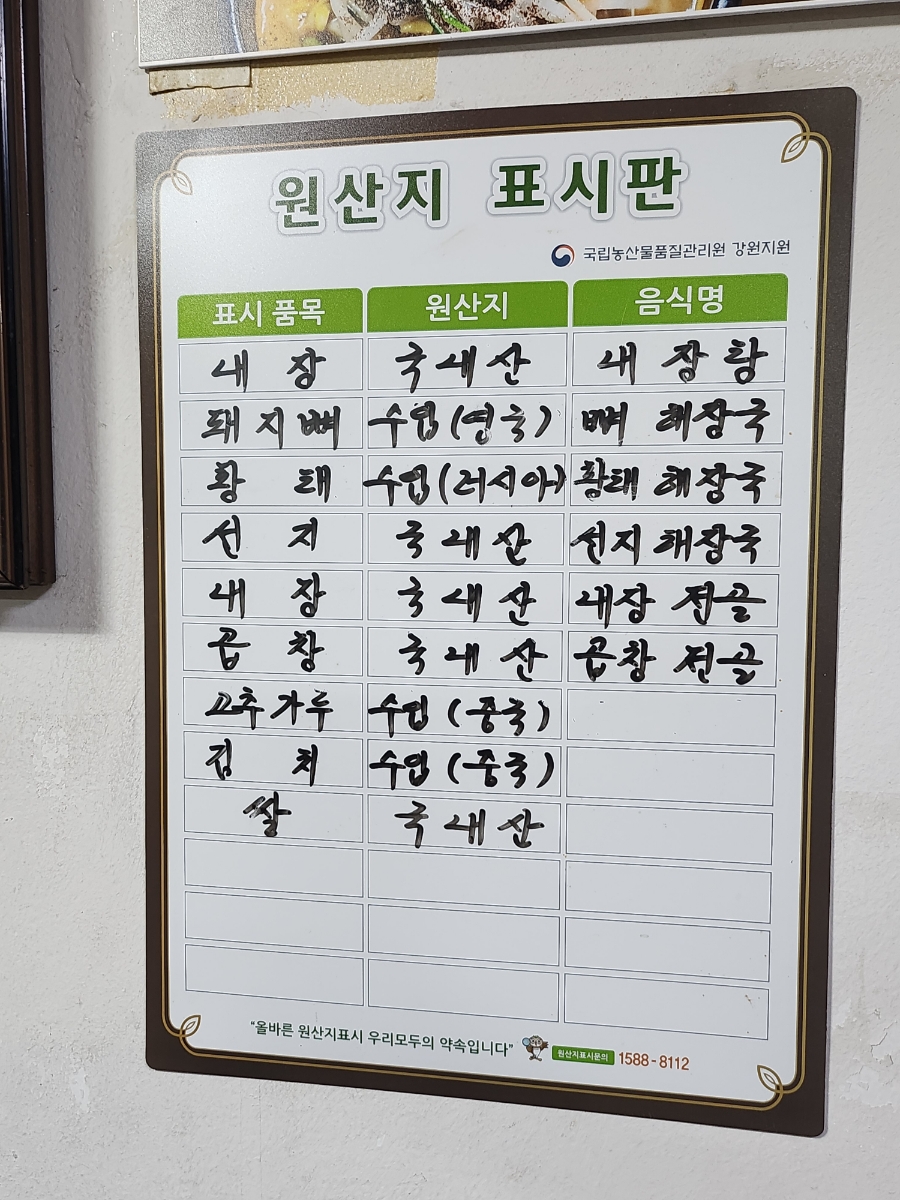 원산지 표시판
국립농산물품질관리원 강원지원
표시 품목 원산지 음식명
내 장 국내산 내 장탕
돼지뼈 수입(영국) 뼈 해장국
황 태 수입(러시아) 황태 해장국
선 지 국내산 선지 해장국
내 장 국내산 내장 전골
곱 창 국내산 곱창 전골
고추가루 수입 (중국)
김 치 수입 (중국)
쌀 국내산
"올바른 원산지표시 우리모두의 약속입니다" 원산지표시문의 1588-8112